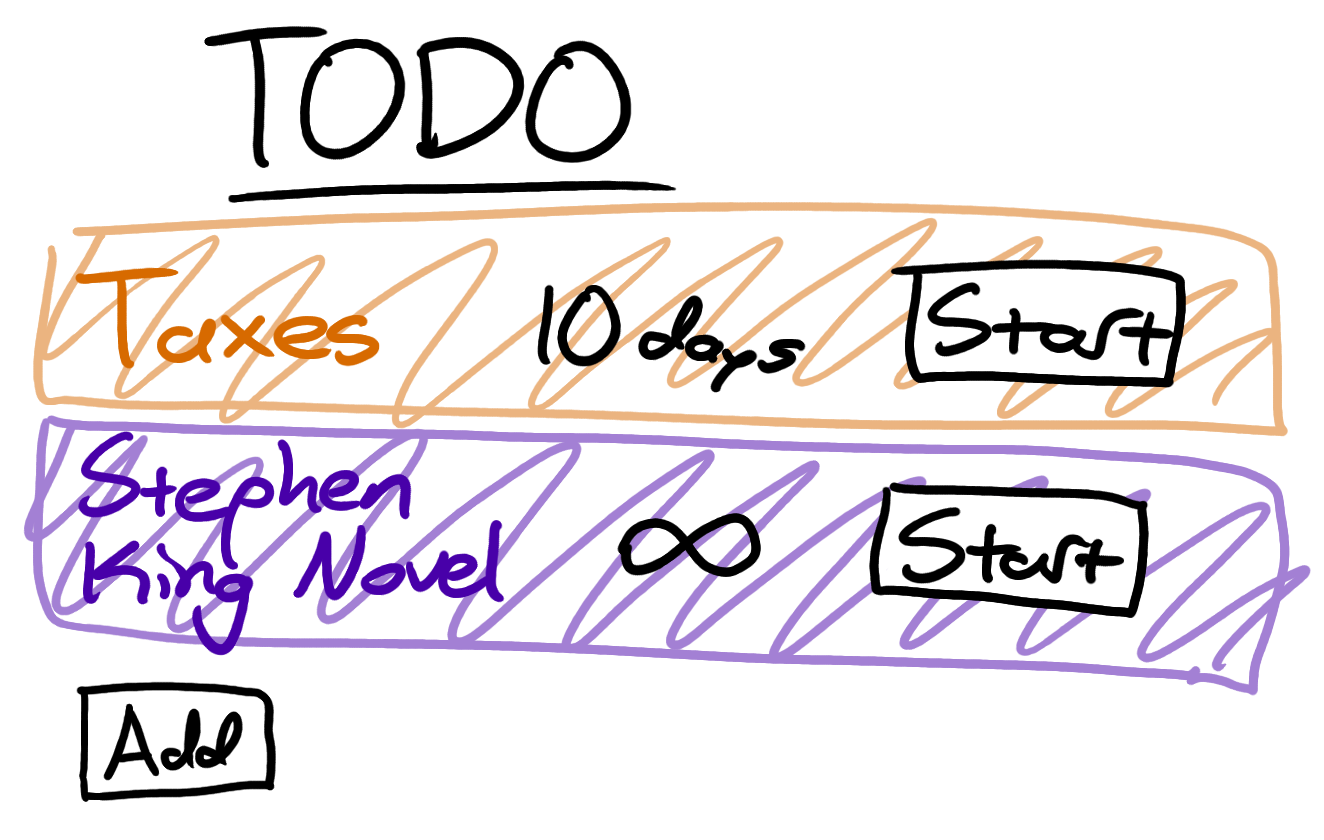 TODO
Taxes 10 days Start
Stephen
King Novel ∞ Start
Add